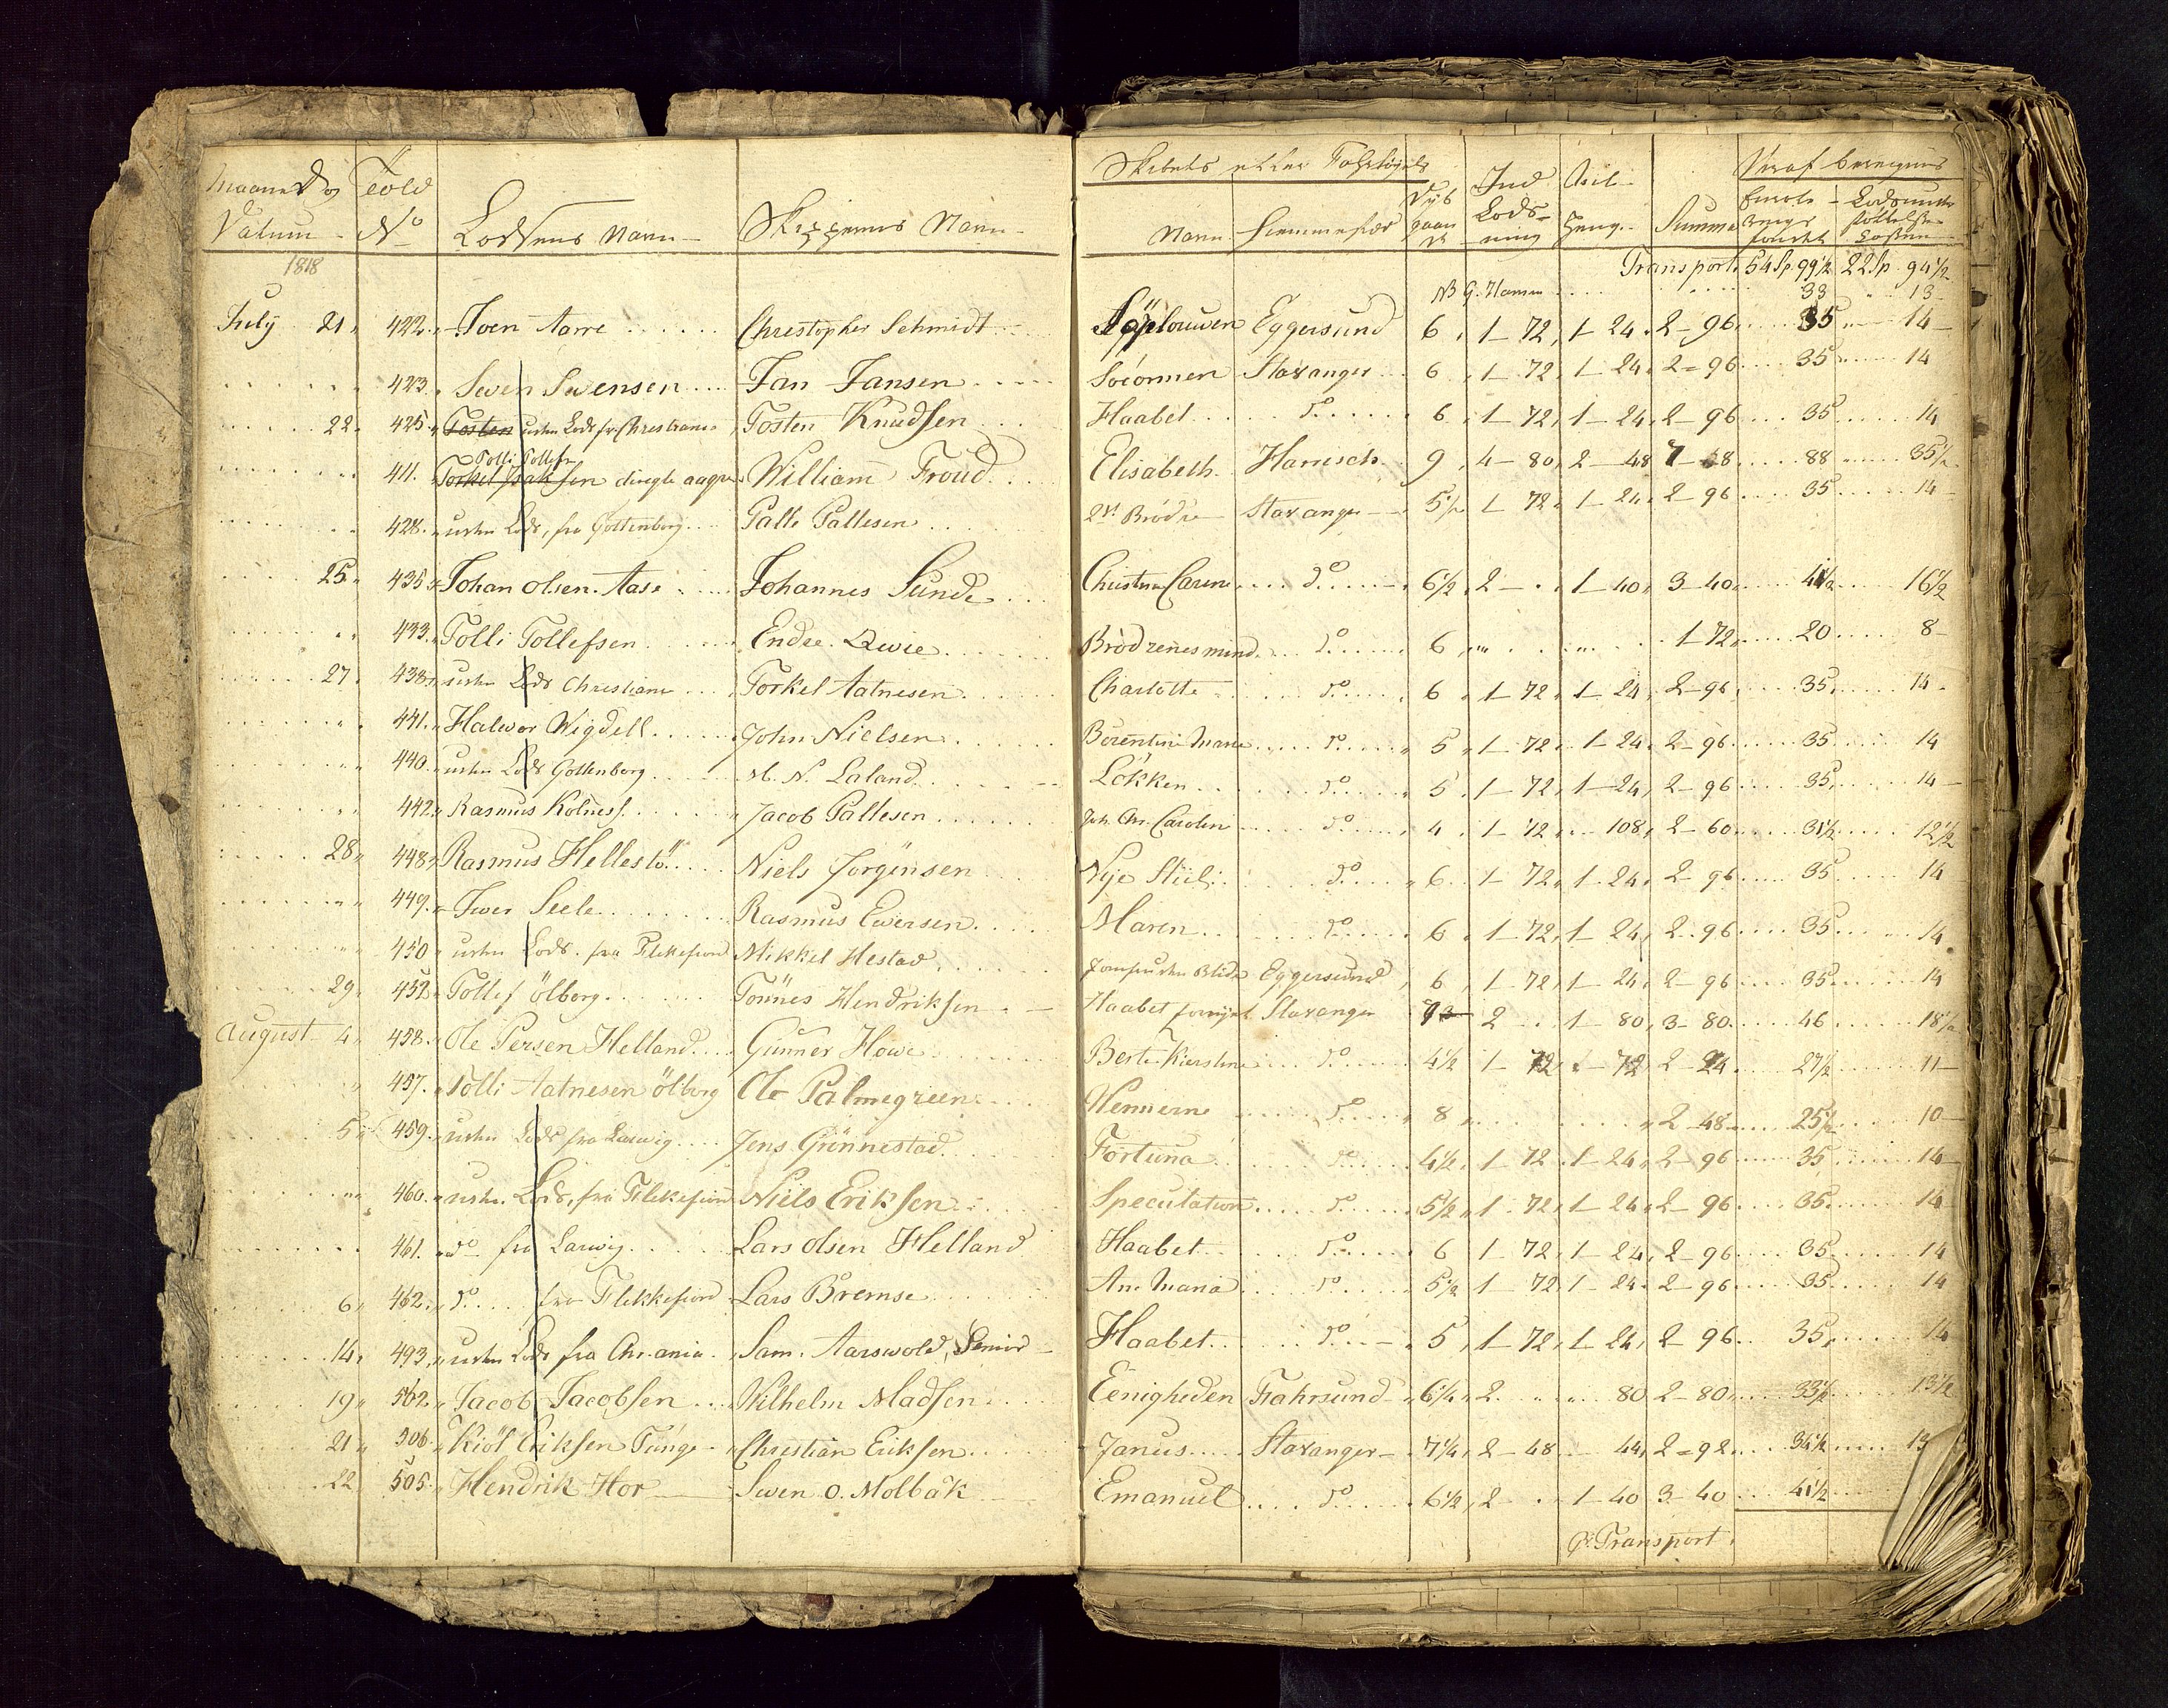 Maaned og Datum | Told No | Lodsens Navn | Skippernes Navn | Skibets eller Fartøyets Navn | Hiemmestæd | Dyb gaaende | Ind Lods-ning | Ud | Summa | Heraf beregnes
1818
Transport 54 Sp 99½ | 22 Sp 94½
NB G. Hansen . . . 33 . . 13
July 21 | 422. | Joen Aarre | Christopher Schmidt | | Eggersund | 6 | 1 – 72 | 1 – 24 | 2 – 96 | 35 | 14
423. | Swen Swensen | Jan Jansen | | Stavanger | 6 | 1 – 72 | 1 – 24 | 2 – 96 | 35 | 14
22 | 425. | uden Lods fr Christiania | Tosten Knudsen | Haabet | do | 6 | 1 – 72 | 1 – 24 | 2 – 96 | 35 | 14
Tolli Tollefsen
411. | directe | William Froud | Elisabeth | Harrisch | 9 | 4 – 80 | 2 – 48 | 7 – 8 | 88 | 35½
428. | uden Lods, fra Gottenborg | Palle Pallesen | 2de Brødre | Stavanger | 5½ | 1 72 | 1 – 24 | 2 – 96 | 35 | 14
25 | 435 | Johan Olsen Aase | Johannes Sunde | Christine Carene | do | 6½ | 2 – | 1 – 40 | 3 – 40 | 41½ | 16½
433. | Tolli Tollefsen | Endre Qwie | Brødrenes minde | do | 6 | | | 1 – 72 | 20 | 8
27 | 438 | uden Lods Christiania | Torkel Aatnesen | Charlotte | do | 6 | 1 – 72 | 1 – 24 | 2 – 96 | 35 | 14
441. | Halwor Wigdell | John Nielsen | Berentine Marie | do | 5 | 1 – 72 | 1 – 24 | 2 – 96 | 35 | 14
440. | uden Lods Gottenborg | M. N. Laland | Løkken | do | 5 | 1 – 72 | 1 – 24 | 2 – 96 | 35 | 14
442 | Rasmus Kolness | Jacob Pallesen | Joh. Chr. Carolin | do | 4 | 1 – 72 | 108 | 2 – 60 | 31½ | 12½
28 | 448 | Rasmus Hellestö | Niels Jorgensen | Nye Stiil | do | 6 | 1 – 72 | 1 – 24 | 2 – 96 | 35 | 14
449. | Iwer Seele | Rasmus Ewersen | Maren | do | 6 | 1 – 72 | 1 – 24 | 2 – 96 | 35 | 14
450 | uden Lods fra Flekkefiord | Mikkel Hestad | | Eggersund | 6 | 1 – 72 | 1 – 24 | 2 – 96 | 35 | 14
29 | 453 | Tollef Ölborg | Tonnes Hendriksen | Haabet | Stavanger | | 2 | 1 – 80 | 3 – 80 | 46 | 18½
August 4 | 458. | Ole Persen Helland | Gunner Howe | Berte Kierstine | do | 4½ | 1 – 72 | 72 | 2 – 24 | 27½ | 11
457. | Tolli Aatnesen Ölborg | Ole Palmegreen | | do | 8 | | | 2 – 48 | 25½ | 10
5 | 459. | uden Lods fra Larwig | Jens Grönnestad | Fortuna | do | 4½ | 1 – 72 | 1 – 24 | 2 – 96 | 35 | 14
460. | uden Lods, fra Flekkefiord | Niels Eriksen | Speculation | do | 5½ | 1 – 72 | 1 – 24 | 2 – 96 | 35 | 14
461. | do fra Larwig | Lars Olsen Helland | Haabet | do | 6 | 1 – 72 | 1 – 24 | 2 – 96 | 35 | 14
6 | 462 | do fra Flekkefiord | Lars Bremse | Ane Maria | do | 5½ | 1 – 72 | 1 – 24 | 2 – 96 | 35 | 14
14 | 493 | uden Lods fra Chr.ania | Sam. Aarswold, Senior | Haabet | do | 5 | 1 – 72 | 1 – 24 | 2 – 96 | 35 | 14
19 | 502. | Jacob Jacobsen | Wilhelm Madsen | Eenigheden | Fahrsund | 6¼ | 2 | 80 | 2 – 80 | 33½ | 13½
21 | 506 | Kiöl Eriksen Tunge | Christian Eriksen | Janus | Stavanger | 7¼ | 2 – 48 | 44 | 2 – 92 | 34½ | 13
22 | 505. | Hendrik Hor | Swen O. Molbak | Emanuel | do | 6½ | 2 | 1 – 40 | 3 – 40 | 41½
Transport